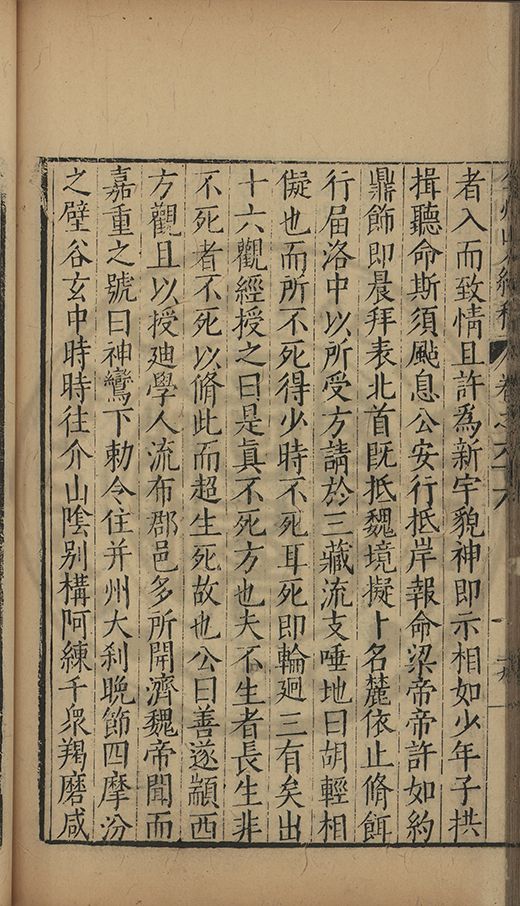 者入而致情且許為新宇貌神即示相如少年子拱
揖聽命斯須颭息公安行抵岸報命梁帝帝許如約
鼎飾即晨拜表北首既抵魏境擬卜名麓依止脩餌
行届洛中以所受方請於三藏流支唾地曰胡輕相
儗也而所不死得少時不死耳死即輪廻三有矣出
十六觀經授之曰是眞不死方也夫不生者長生非
不死者不死以脩此而超生死故也公曰善遂顓西
方觀且以授廸學人流布郡邑多所開濟魏帝聞而
嘉重之號曰神鸞下勅令住并州大刹晚節四摩汾
之壁谷玄中時時往介山陰别構阿練千衆羯磨咸